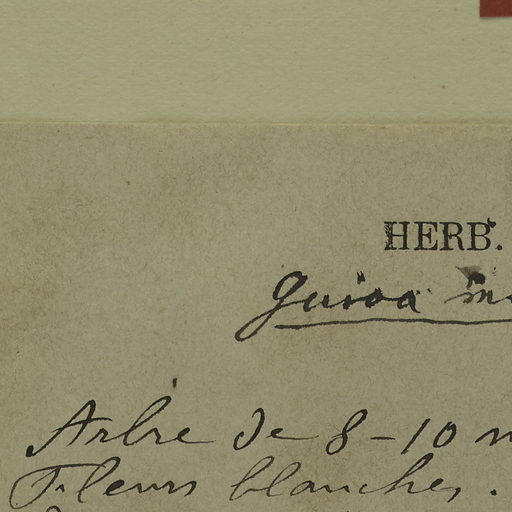 HERB.
Guioa
Arbre de 8-10
Fleurs blanches.